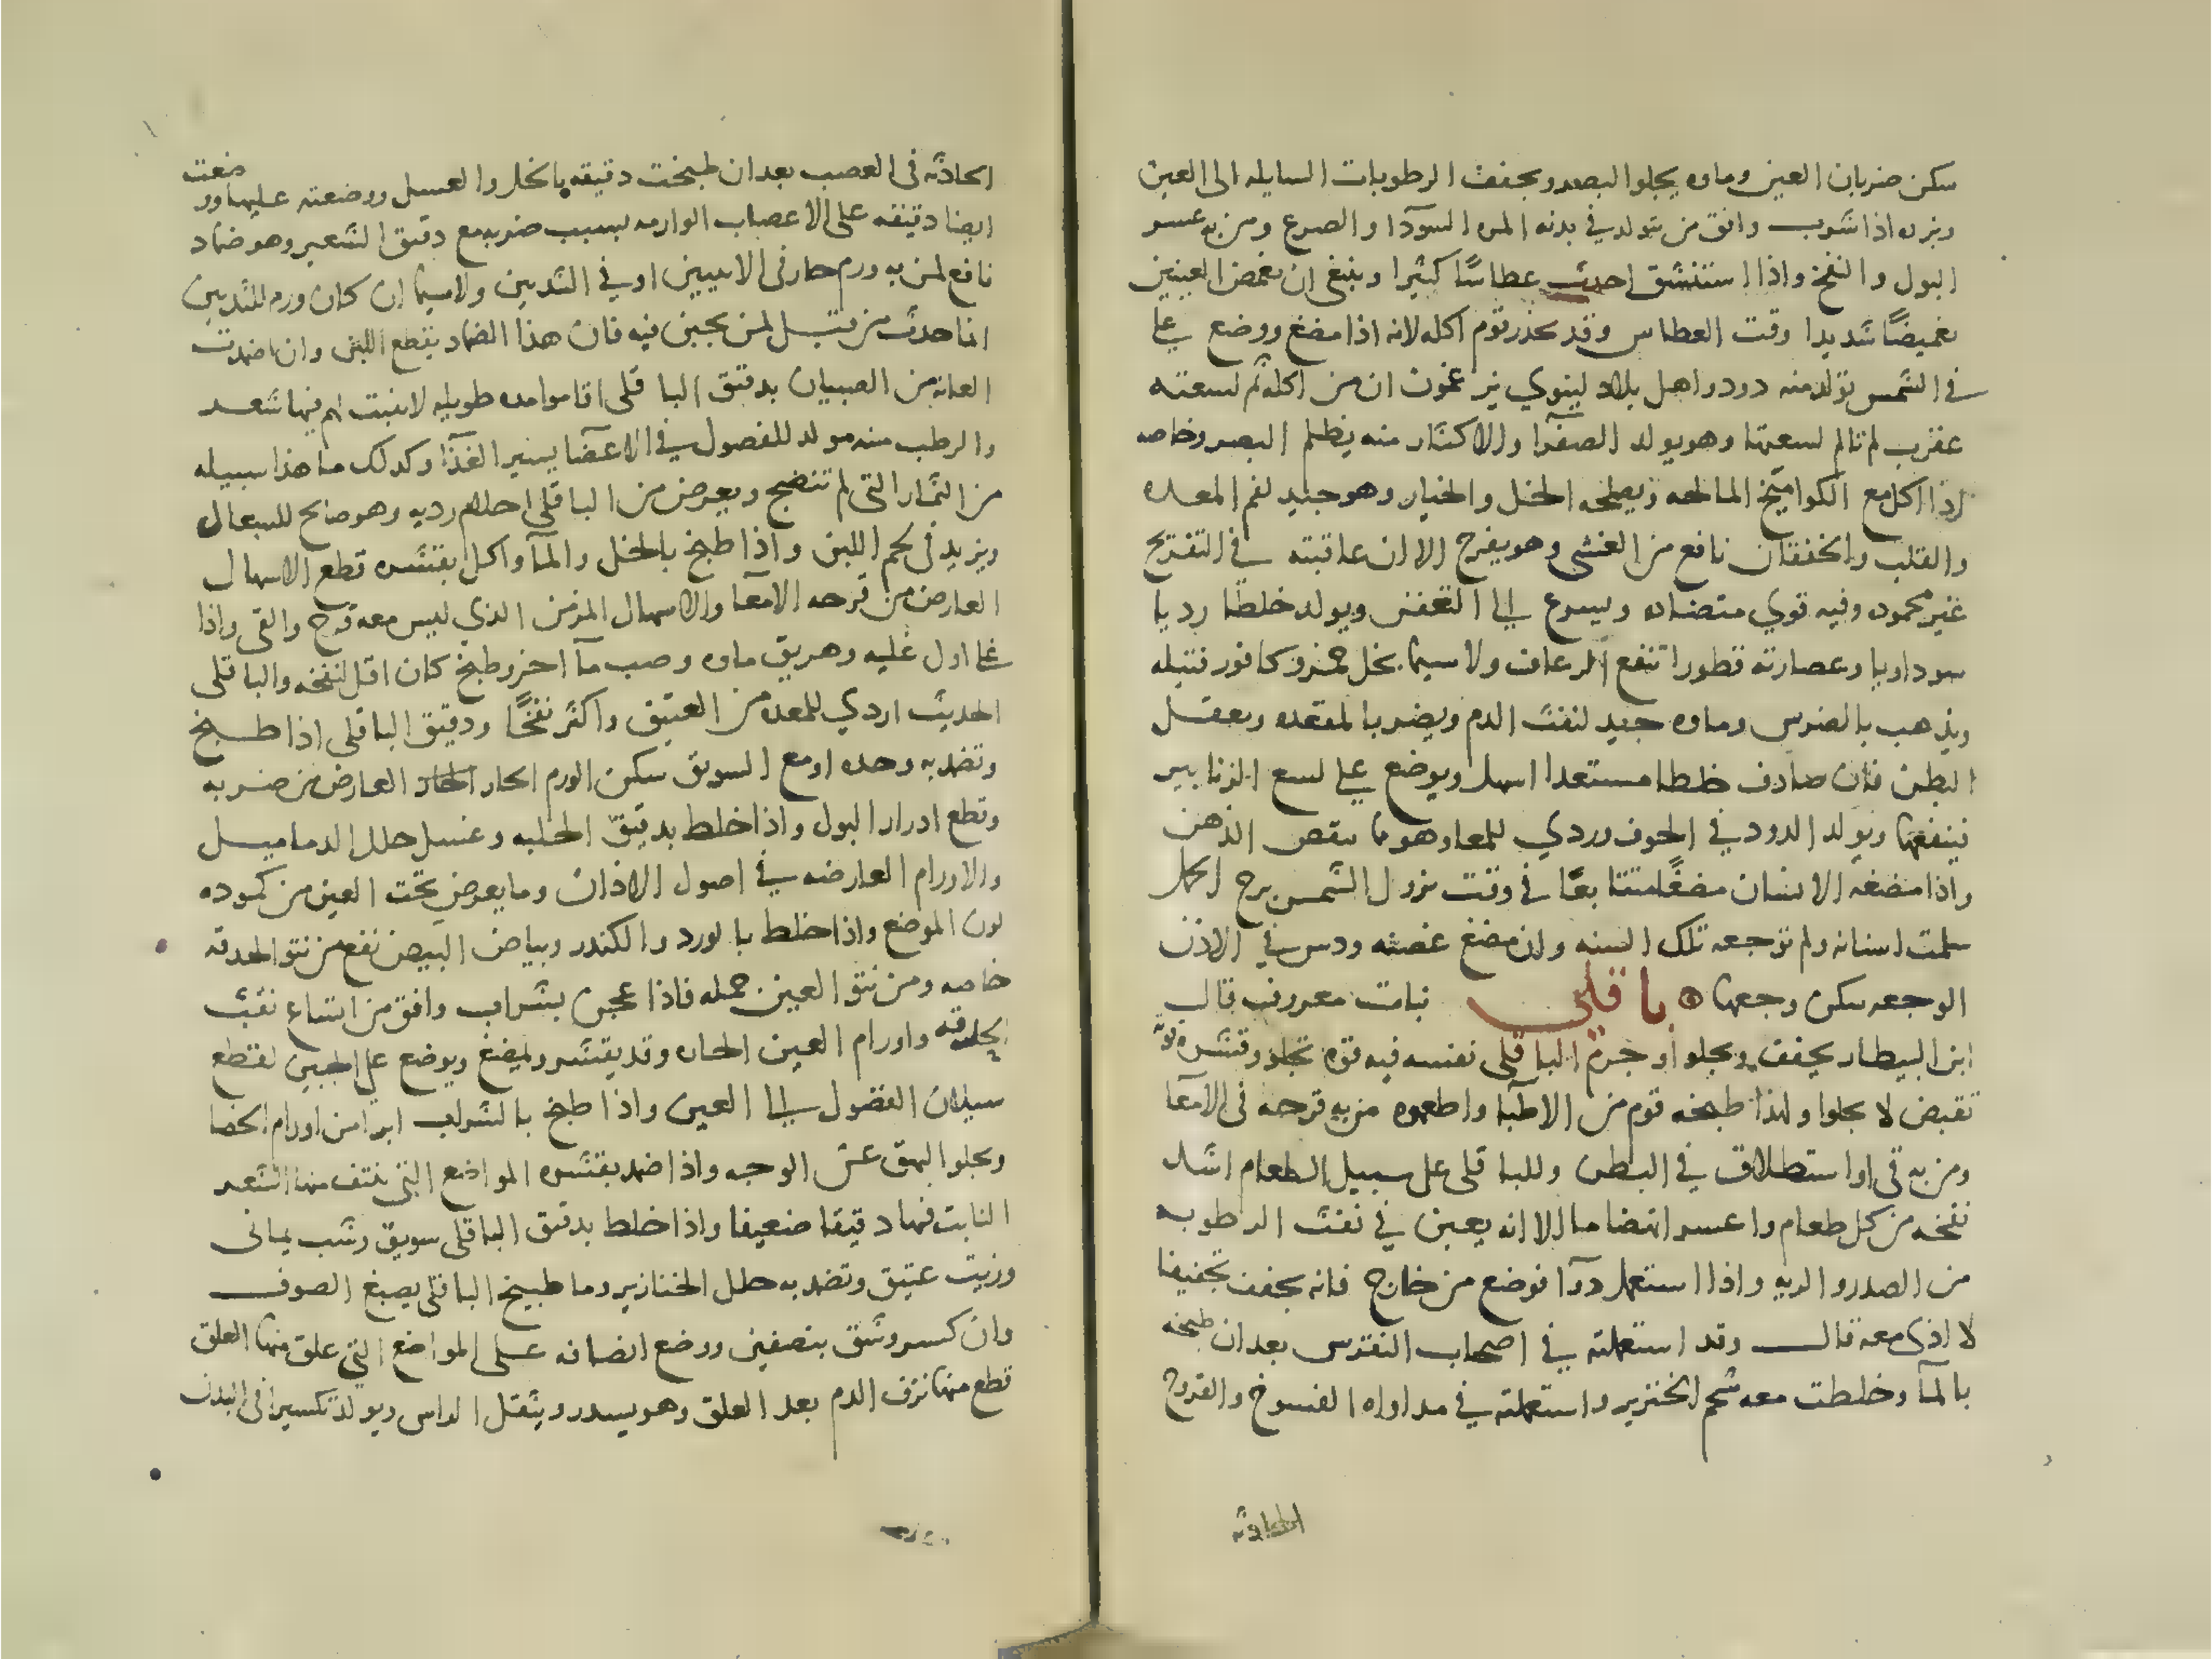 سكن ضربان العين وماوه يجلوا البصر ويجفف الرطوبات السايله الى العين
وبزره اذا شرب وافق من تتولد في بدنه المره السودآ والصرع ومن به عسر
البول والنفخ واذا استنشق احدث عطاسًا كثيرا وينبغي ان تغمض العينين
تغميضًا شديدا وقت العطاس وقد يحذر قوم اكله لانه اذا مضغ ووضع على
في الشمس تولد منه دود واهل بلاد لينوي يزعمون ان من اكله ثم لسعته
عقرب لم تالم لسعتها وهو يولد الصفرآ والاكثار منه يظلم البصر وخاصه
اذا اكل مع الكواميخ المالحه ويصلحه الخل والخيار وهو جيد لفم المعده
والقلب والخفقان نافع من الغشى وهو يفرح الا ان عاقبته في التفريح
غير محموده وفيه قوي متضاده ويسرع الى التعفن ويولد خلطا رديا
سوداويا وعصارته قطورا تنفع الرعاف ولا سيما بخل خمر وكافور فتيله
ويذهب بالضرس وماوه جيد لنفث الدم ويضر بالمقعده ويعقل
البطن فان صادف خلطا مستعدا اسهل ويوضع على لسع الزنابير
فينفعها ويولد الدود في الجوف وردي للمعا وهو مما ينقص الذهن
واذا مضغه الانسان مضغًا متتابعًا في وقت نزول الشمس برج الحمل
سلمت اسنانه ولم توجعه تلك السنه وان مضغ غصنه ودس في الاذن
الوجعه سكن وجعها ۞ باقلى نبات معروف قال
ابن البيطار يجفف ويجلوا وجرم الباقلى نفسه فيه قوه تجلو وقشره قوته
تقبض لا يجلوا ولهذا طبخه قوم من الاطبآ واطعموه من به قرحه في الامعآ
ومن به قي او استطلاق في البطن وللباقلى على سبيل الطعام اشد
نفخه من كل طعام واعسر انهضاما الا انه يعين في نفث الرطوبه
من الصدر والريه واذا استعمل دوآ فوضع من خارج فانه يجفف تجفيفا
لا اذى معه قال وقد استعملته في اصحاب النقرس بعد ان طبخه
بالمآ وخلطت معه شحم الخنزير واستعملته في مداواه الفسوخ والقروح
الحادثه
الحادثه في العصب بعد ان طبخت دقيقه بالخل والعسل ووضعته عليها ووضعت
ايضا دقيقه على الاعصاب الوارمه بسبب ضربه مع دقيق الشعير وهو ضماد
نافع لمن به ورم حار في الانثيين او في الثديين ولا سيما ان كان ورم الثديين
انما حدث من قبل لبن يجبن فيه فان هذا الضماد يقطع اللبن وان ضمدت
العانه من الصبيان بدقيق الباقلى اقاموا مده طويله لا ينبت لهم فيها شعر
والرطب منه مولد للفضول في الاعضآ يسير الغذآ وكدلك ما هذا سبيله
من الثمار التى لم تنضج ويعرض من الباقلى احلام رديه وهو صالح للسعال
ويزيد في لحم اللبن واذا طبخ بالخل والمآ واكل بقشره قطع الاسهال
العارض من قرحه الامعآ والاسهال المزمن الذي ليس معه قرح والقى واذا
غلا اول غليه وهريق ماوه وصب مآ اخر وطبخ كان اقل لنفخه والباقلى
الحديث اردي للمعده من العتيق واكثر نفخًا ودقيق الباقلى اذا طبخ
وتضمد به وحده او مع السويق سكن الورم الحار العارض من ضربه
وقطع ادرار البول واذا خلط بدقيق الحلبه وعسل حلل الدماميل
والاورام العارضه في اصول الاذان وما يعرض تحت العين من كموده
لون الموضع واذا خلط بالورد والكندر وبياض البيض نفع من نتو الحدقه
خاصه ومن نتو العين جمله فاذا عجن بشراب وافق من اتساع ثقب
الحدقه واورام العين الحاره وقد يقشر ويمضغ ويوضع على الجبين لقطع
سيلان الفضول الى العين واذا طبخ بالشراب ابرا من اورام الخصا
ويجلو البهق عن الوجه واذا ضمد بقشره المواضع التى ينتف منها الشعر
النابت فيها دقيقا ضعيفا واذا خلط بدقيق الباقلى سويق وشب يمانى
وزيت عتيق وتضمد به حلل الخنازير وما طبيخ الباقلى يصبغ الصوف
وان كسر وشق بنصفين ووضع انصافه على المواضع التي علق فيها العلق
قطع منها نزف الدم بعد العلق وهو يسدر ويثقل الراس ويولد تكسيرا فى البدن